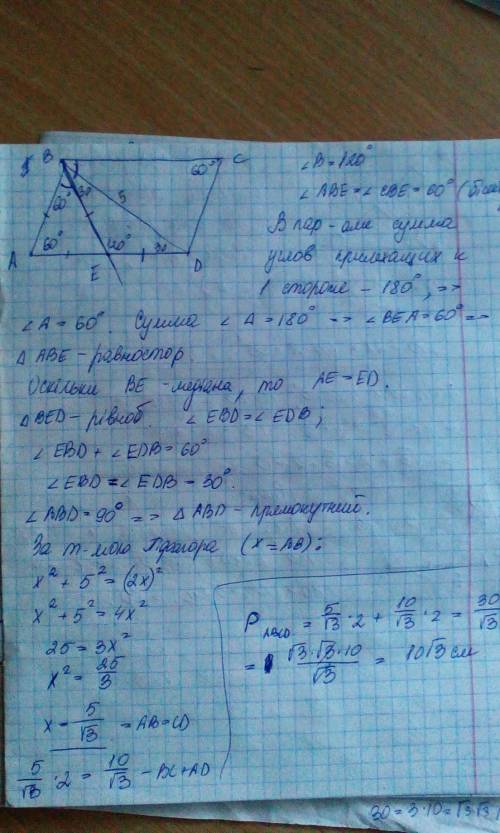 B
C
60°
60°
30
5
A
60°
120°
30
E
D
∠B=120°
∠ABE=∠CBE=60° (біс
В пар-аме сумма
углов прилежащих к
1 стороне - 180°, =>
∠A=60°. Сумма ∠Δ=180° => ∠BEA=60° =>
ΔABE - равностор
Оскільки BE - медіана, то AE=ED.
ΔBED - рівноб. ∠EBD=∠EDB;
∠EBD+∠EDB=60°
∠EBD=∠EDB=30°.
∠ABD=90° => ΔABD - прямокутний.
За т-мою Піфагора (x=AB):
x²+5²=(2x)²
x²+5²=4x²
25=3x²
x²=25/3
x=5/√3=AB=CD
5/√3·2=10/√3-BC+AD
P=5/√3·2+10/√3·2=30/√3
=√3·√3·10/√3=10√3 см
30=3·10=√3√3